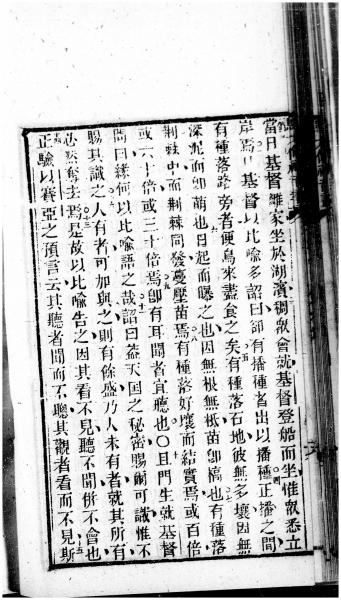 當日基督離家坐於湖濱稠眾會就基督登船而坐惟眾悉立
岸焉基督以比喻多詔曰師有播種者出以播種正播之間
有種落路旁者便鳥來盡食之矣有種落石地彼無多壤因無
深泥而即萌也日起而曝之也因無根無柢苗即槁也有種落
荆棘中而荆棘同發蔓壓苗焉有種落好壤而結實焉或百倍
或六十倍或三十倍焉即有耳聞者宜聽也〇且門生就基督
問曰緣何以比喻語之哉詔曰葢天国之秘密賜爾可識惟不
賜其識之人有者可加與之則有餘盛乃人未有者就其所有
必然奪去焉是故以比喻告之因其看不見聽不聞併不會也
正驗以賽亞之預言云其聽者聞而不聰其觀者看而不見斯